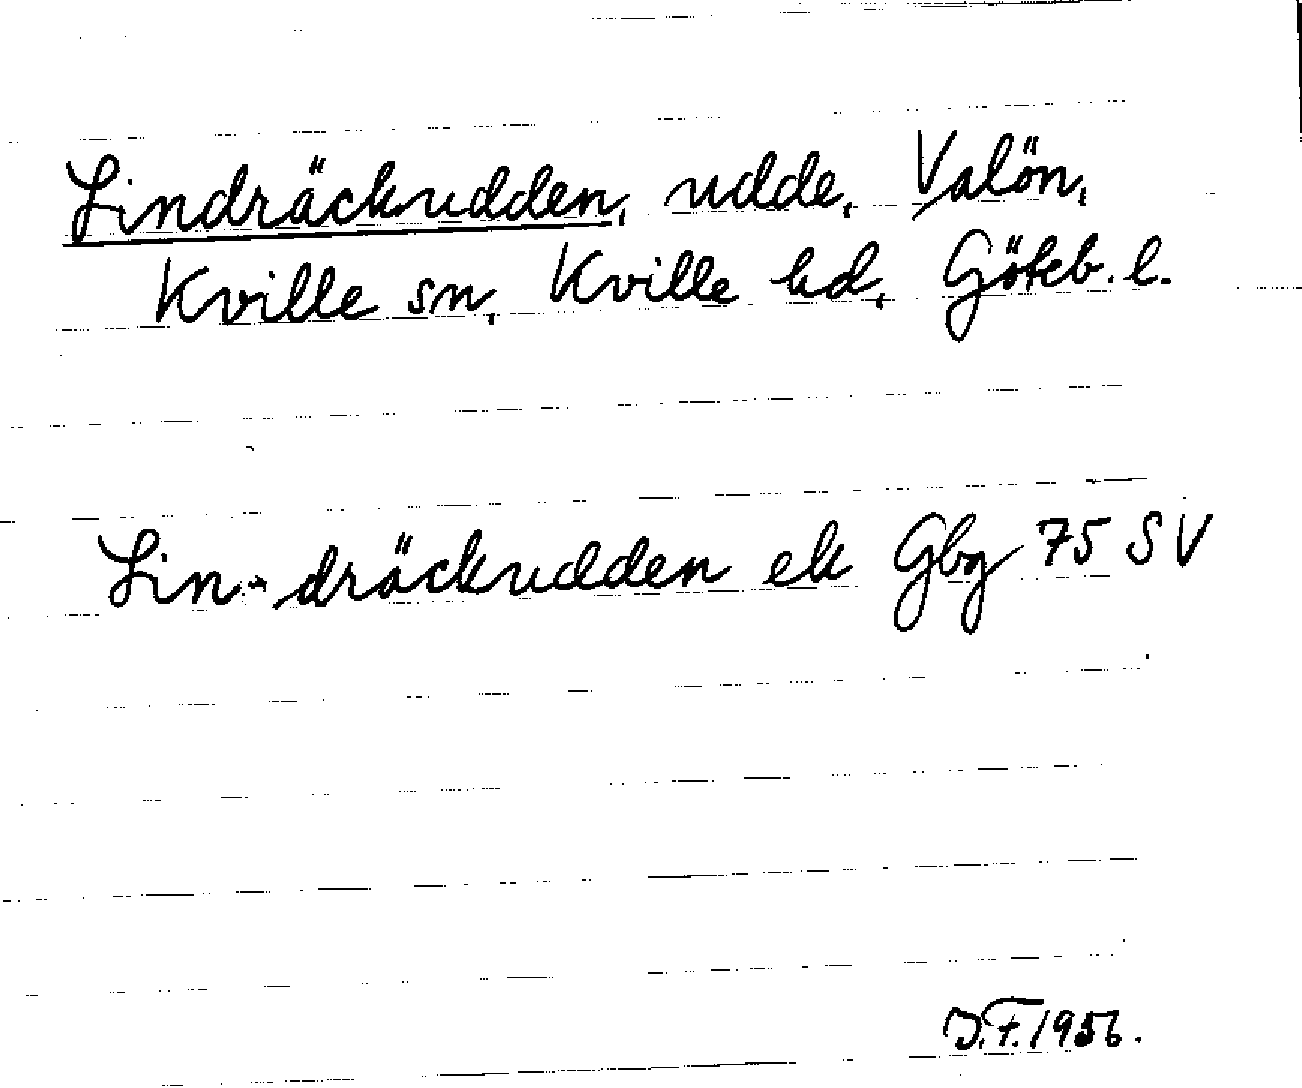 Lindräckudden, udde, Valön,
Kville sn, Kville hd, Göteb. l.
Lin- dräckudden ek Gbg 75 SV
J.F. 1956.